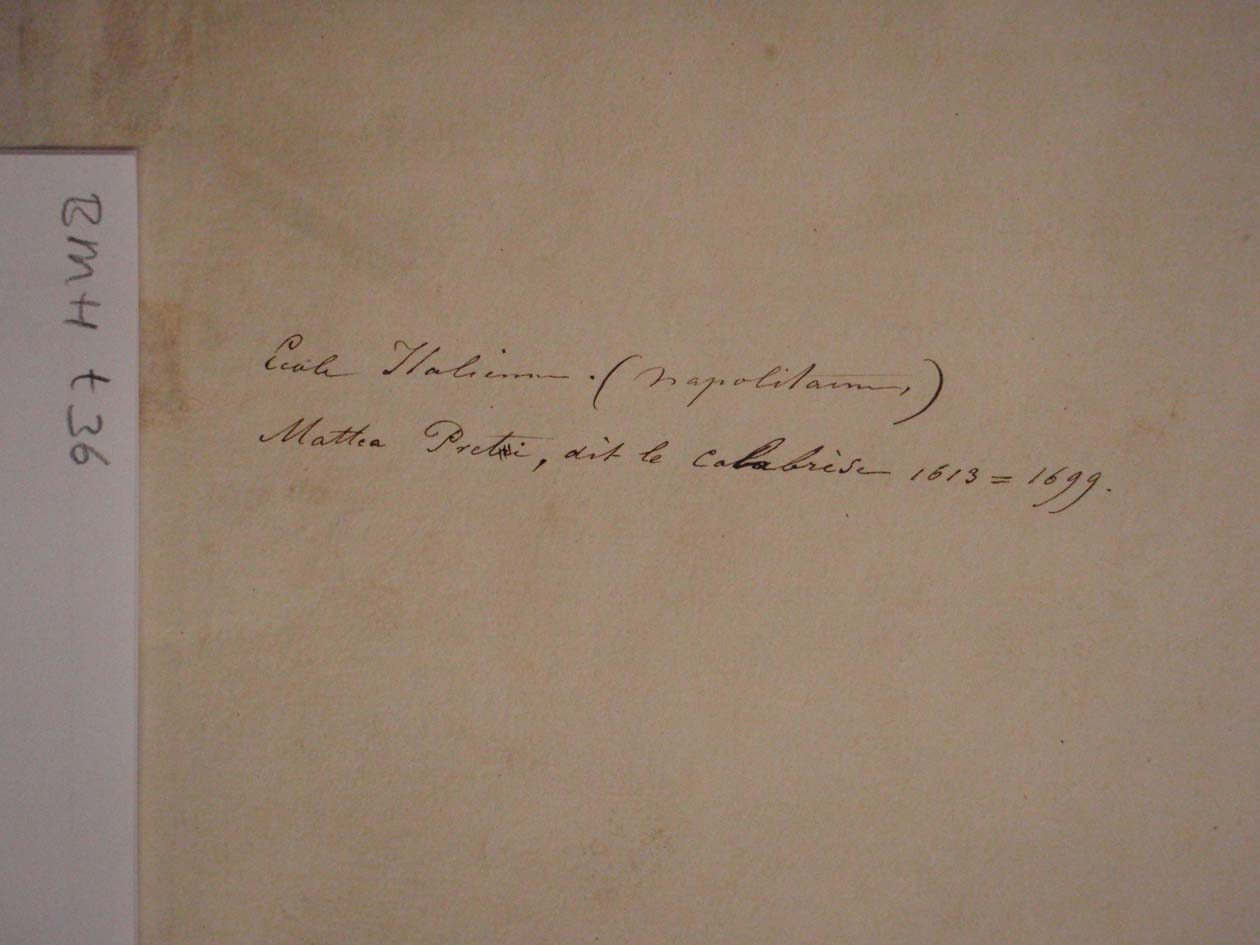 BMH t 36
Ecole Italienne. (napolitaine,)
Mattea Preti, dit le calabrèse 1613 = 1699.